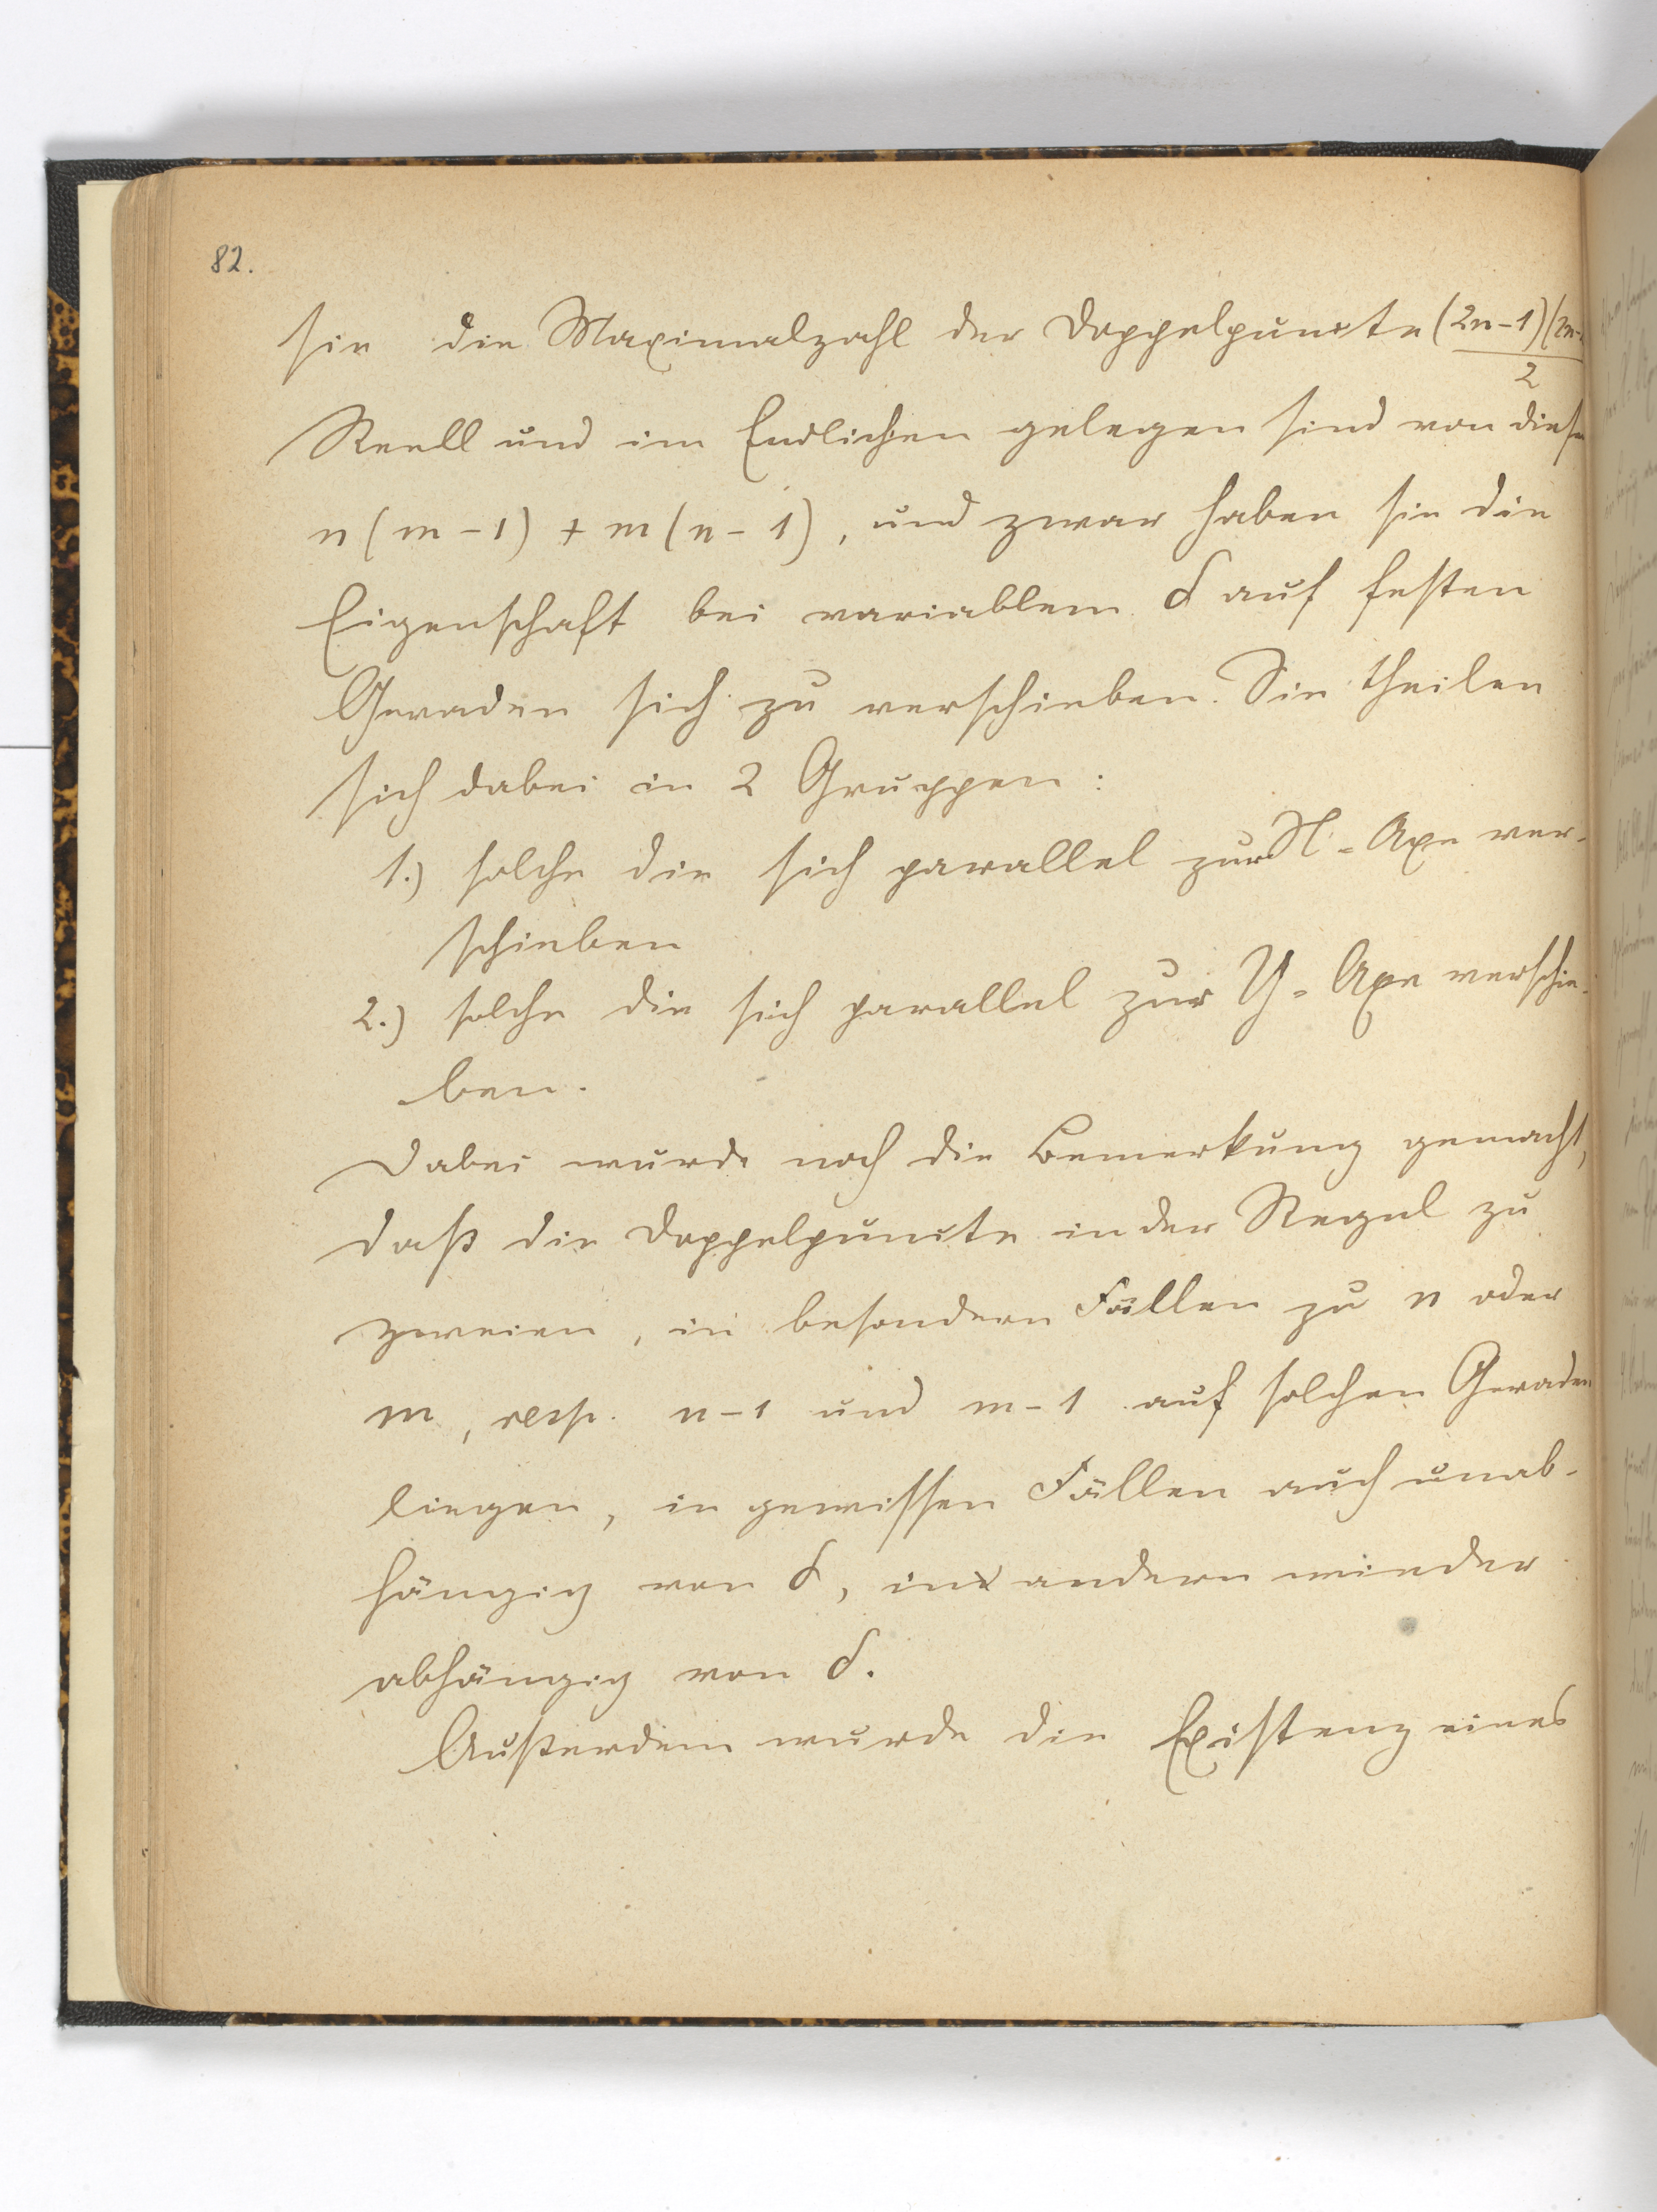 82.
sie die Maximalzahl der Doppelpuncte (2n-1)(2n-
2
Reell und im Endlichen gelegen sind von diesen
n(m-1) + m(n-1), und zwar haben sie die
Eigenschaft bei variablem δ auf festen
Geraden sich zu verschieben. Sie theilen
sich dabei in 2 Gruppen:
1.) solche die sich parallel zur X-Axe ver-
schieben
2.) solche die sich parallel zur Y-Axe verschie-
ben.
Dabei wurde noch die Bemerkung gemacht,
daß die Doppelpuncte in der Regel zu
zweien, in besondern Fällen zu n oder
m, resp. n-1 und m-1 auf solchen Geraden
liegen, in gewissen Fällen auch unab-
hängig von δ, in andern minder
abhängig von δ.
Außerdem wurde die Existenz eines